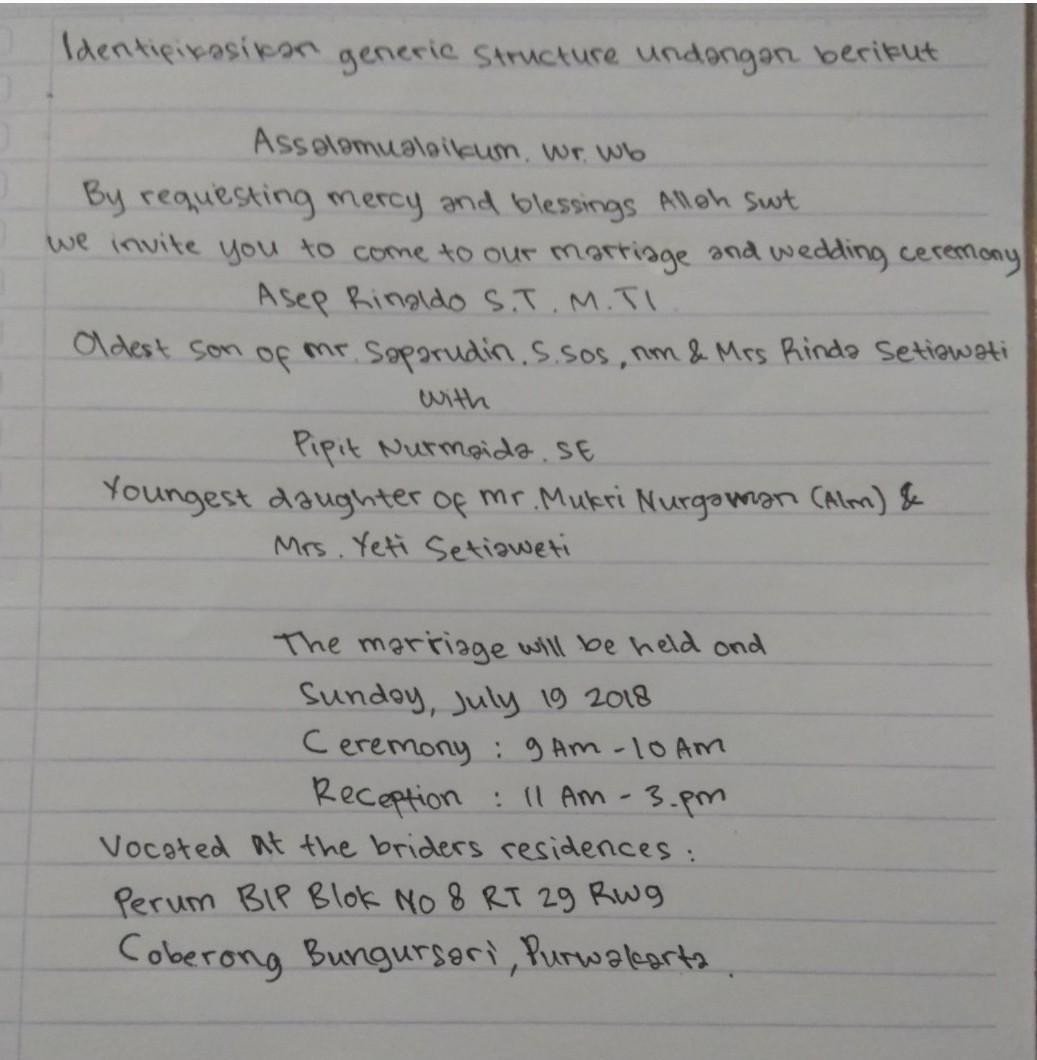 Identifikasikan generic structure undangan berikut
Assalamualaikum. Wr. Wb
By requesting mercy and blessings Allah Swt
we invite you to come to our marriage and wedding ceremony
Asep Rinaldo S.T. M.TI
Oldest son of mr. Saparudin. S.Sos, mm & Mrs Rinda Setiawati
with
Pipit Nurmaida. SE
Youngest daughter of mr. Mukri Nurgaman (Alm) &
Mrs. Yeti Setiaweti
The marriage will be held ond
Sunday, July 19 2018
Ceremony : 9 Am - 10 Am
Reception : 11 Am - 3.pm
Vocated at the briders residences :
Perum BIP Blok No 8 RT 29 RW9
Coberong Bungursari, Purwakarta.